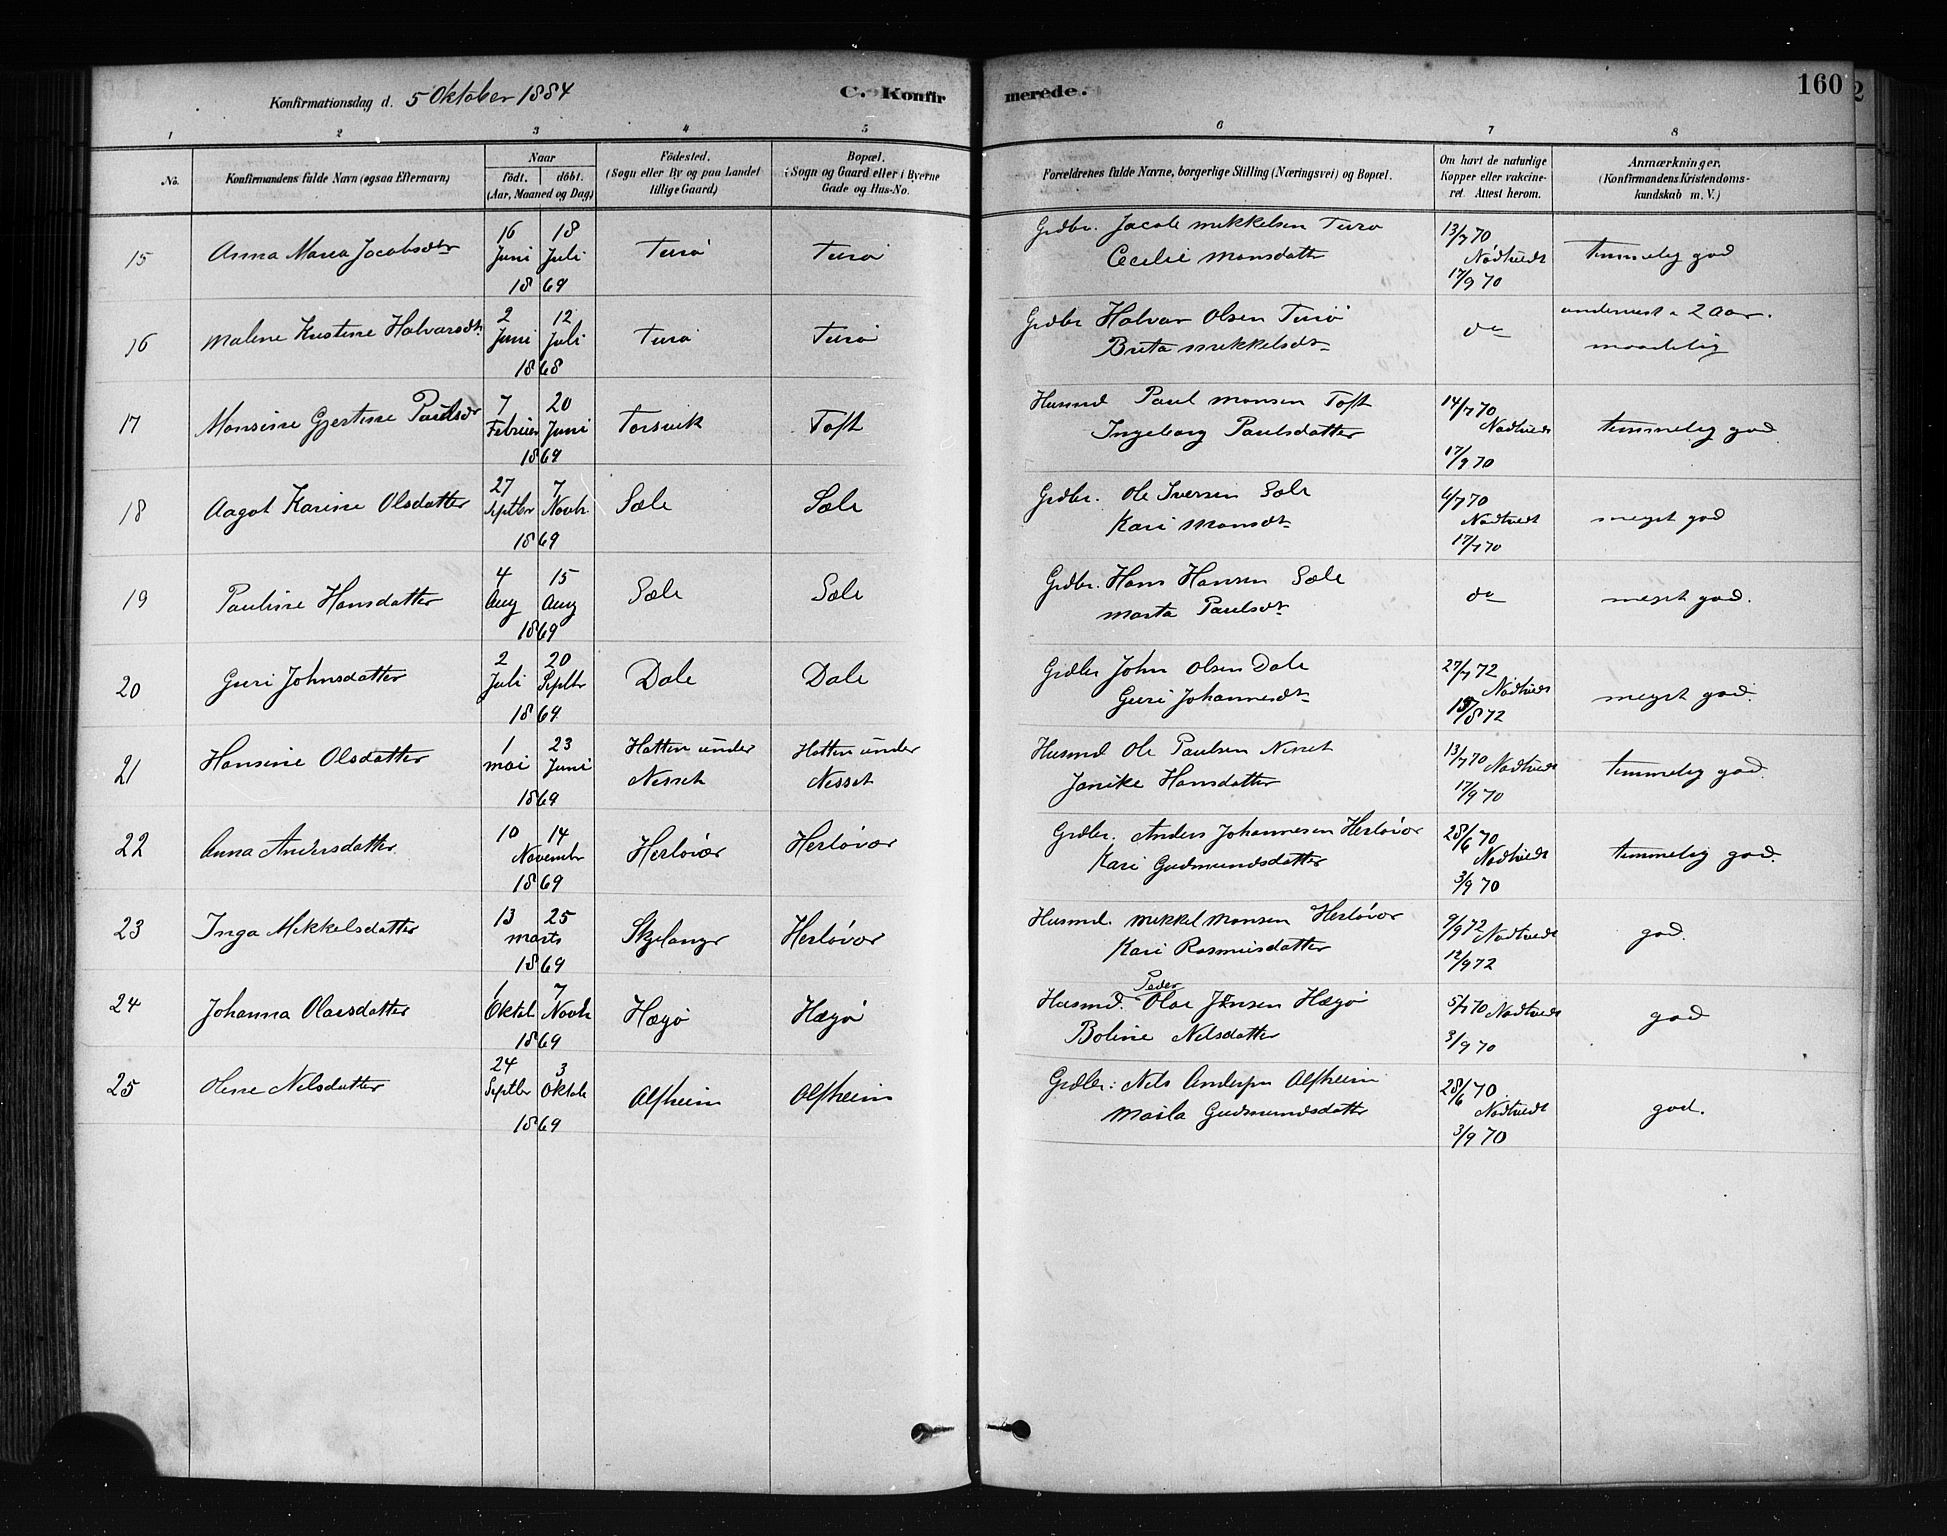 Konfirmationsdag d. 5 Oktober 1884
C. Konfirmerede.
160
1 2 3 4 5 6 7 8
No.
Konfirmandens fulde Navn (ogsaa Efternavn)
Naar
födt. döbt.
(Aar, Maaned og Dag)
Födested.
(Sogn eller By og paa Landet tillige Gaard)
Bopæl.
(Sogn og Gaard eller i Byerne Gade og Hus-No.
Forældrenes fulde Navne, borgerlige Stilling (Næringsvei) og Bopæl.
Om havt de naturlige Kopper eller vakcineret. Attest herom.
Anmærkninger,
(Konfirmandens Kristendomskundskab m. V.)
15 Anna Maria Jacobsdtr 16 Juni 18 Juli 1869 Turø Turø Grdbr. Jacob Mikkelsen Turø
Cecilie Monsdatter 13/7 70 Nødtvedt 17/9 70 temmelig god
16 Malene Kristine Halvarsdt 2 Juni 12 Juli 1868 Turø Turø Grdbr Halvar Olsen Turø
Brita Mikkelsdt do undervist 2 Aar. maadelig
17 Monsine Gjertine Paulsdr 7 Februar 20 Juni 1869 Torsvik Toft Husmd Paul Monsen Toft
Ingeborg Paulsdatter 14/7 70 Nødtvedt 17/9 70 temmelig god
18 Aagot Karine Olsdatter 27 Septbr 7 Novbr 1869 Sæle Sæle Grdbr. Ole Iversen Sæle
Kari Monsdt 6/7 70 Nødtvedt 17/7 70 meget god
19 Pauline Hansdatter 4 Aug 15 Aug 1869 Sæle Sæle Grdbr. Hans Hansen Sæle
Marta Paulsdt do meget god.
20 Guri Johnsdatter 2 Juli 20 Septbr 1869 Dale Dale Grdbr John Olsen Dale
Guri Johannesdt 27/7 72 Nødtvedt /8 72 meget god.
21 Hansine Olsdatter 1 Mai 23 Juni 1869 Hatten under Nesset Hatten under Nesset Husmd Ole Paulsen Nesset
Janike Hansdatter 13/7 70 Nødtvedt 17/9 70 temmelig god.
22 Anna Andersdatter 10 14 November 1869 Herløvær Herløvær Grdbr. Anders Johannesen Herløvær
Kari Gudmundsdatter 28/6 70 Nødtvedt 3/9 70 temmelig god.
23 Inga Mikkelsdatter 13 25 Marts 1869 Skjelanger Herløvær Husmd. Mikkel Monsen Herløvær
Kari Rasmusdatter 9/9 72 Nødtvedt 12/9 72 god.
24 Johanna Olaesdatter 1 Oktbr 7 Novbr 1869 Hægø Hægø Husmd. Peder Olae Jensen Hægø
Boline Nilsdatter 5/7 70 Nødtvedt 3/9 70 god
25 Olene Nilsdatter 24 Septbr 3 Oktob 1869 Alfheim Alfheim Grdbr: Nils Andersen Alfheim
Marta Gudmundsdatter 28/6 70. Nødtvedt 3/9 70 god.